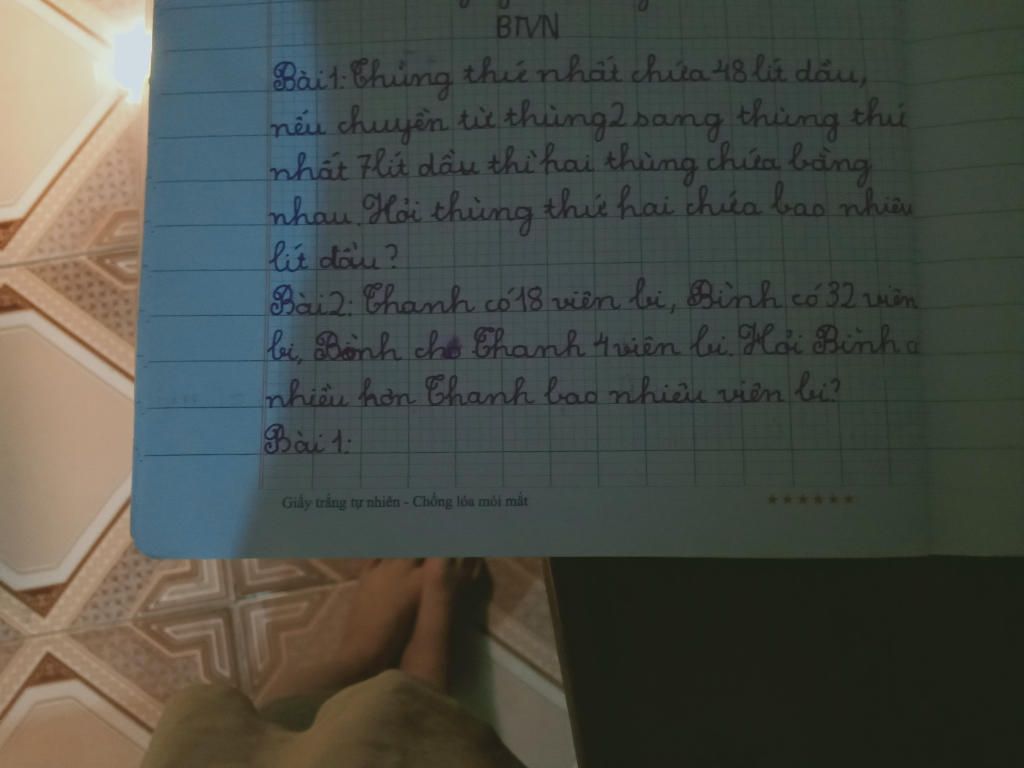 BTVN
Bài 1: Thùng thứ nhất chứa 48 lít dầu,
nếu chuyển từ thùng 2 sang thùng thứ
nhất 7 lít dầu thì hai thùng chứa bằng
nhau. Hỏi thùng thứ hai chứa bao nhiêu
lít dầu?
Bài 2: Thanh có 18 viên bi, Bình có 32 viên
bi, Bình cho Thanh 4 viên bi. Hỏi Bình c
nhiều hơn Thanh bao nhiêu viên bi?
Bài 1:
Giấy trắng tự nhiên - Chống lóa mỏi mắt